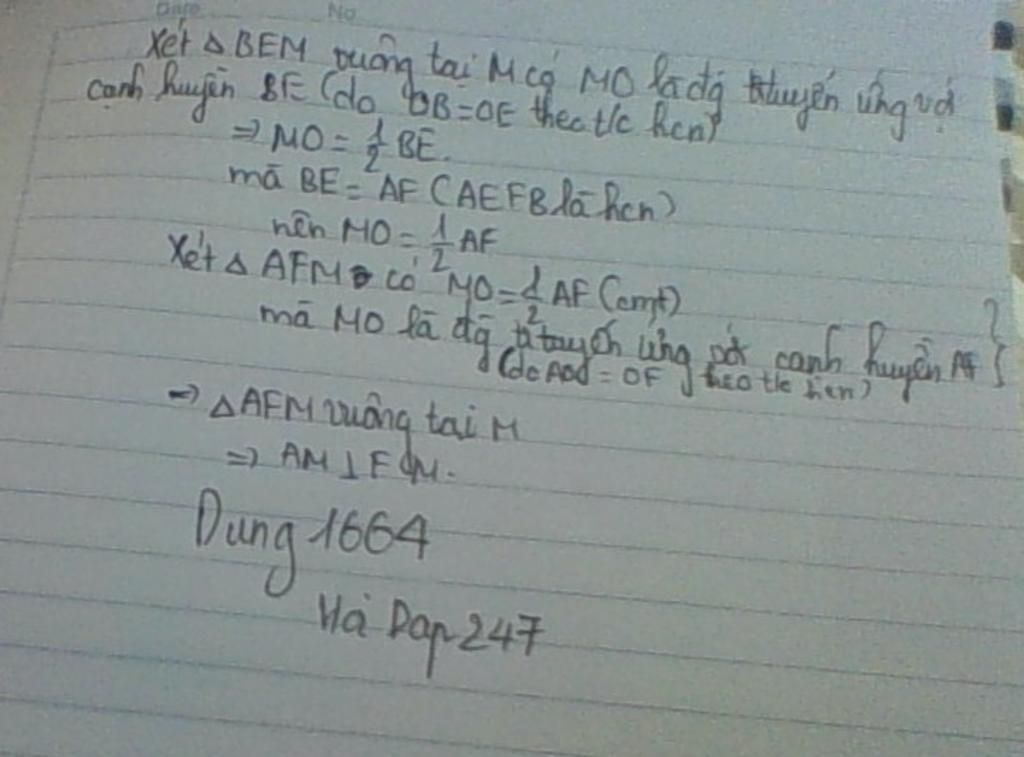 Date No
Xét Δ BEM vuông tại M có MO là đg tuyến ứng với
cạnh huyền BE (do OB=OE theo t/c hcn)
⇒ MO = 1/2 BE.
mà BE = AF (AEFB là hcn)
nên MO = 1/2 AF
Xét Δ AFM có MO = 1/2 AF (cmt)
mà MO là đg tuyến ứng với cạnh huyền AF }
(do = OF theo t/c hcn)
→ Δ AFM vuông tại M
⇒ AM ⊥ FM.
Dung 1664
Hỏi Dap 247